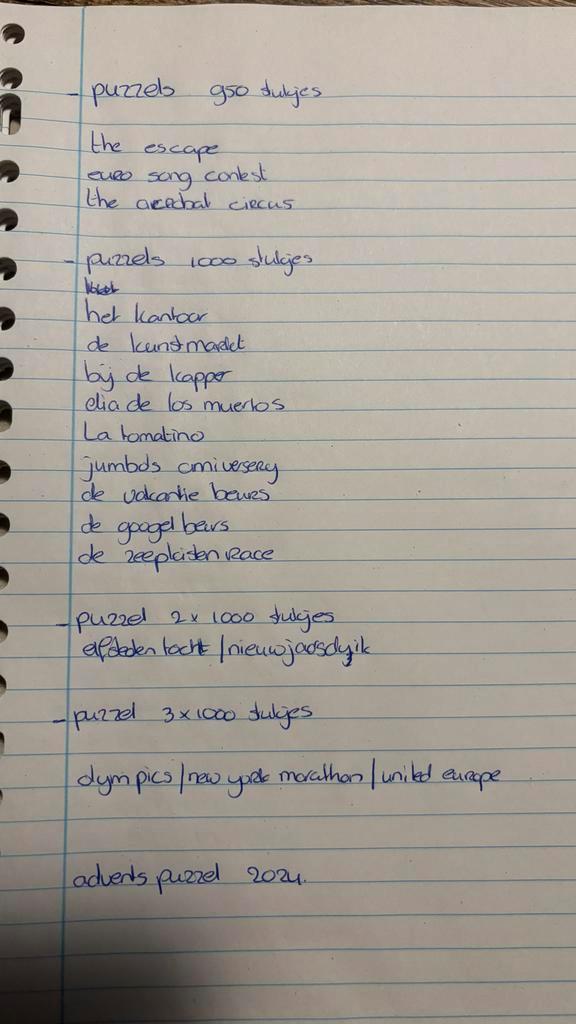 - puzzels 950 stukjes
the escape
euro song contest
the acrobat circus
- puzzels 1000 stukjes
het kantoor
de kunstmarkt
bij de kapper
dia de los muertos
La tomatino
jumbo's aniversery
de vakantie beurs
de googel beurs
de zeepkisten race
- puzzel 2x1000 stukjes
elfsteden tocht / nieuwjaarsdyik
- puzzel 3x1000 stukjes
olympics / new york marathon / united europe
advents puzzel 2024.